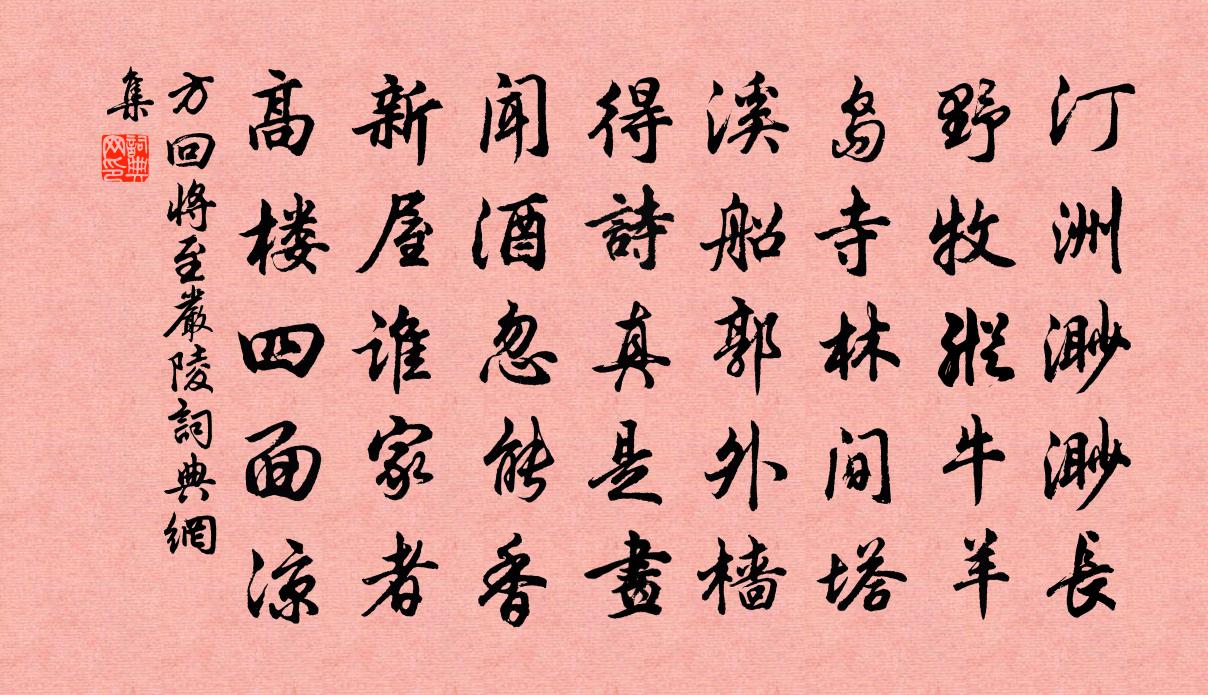 汀洲渺渺長
野牧縱牛羊
島寺林間塔
溪船郭外檣
得詩真是畫
闻酒忽能香
新屋誰家者
高楼四面涼
方回將至嚴陵詞典網
集
詞典網印